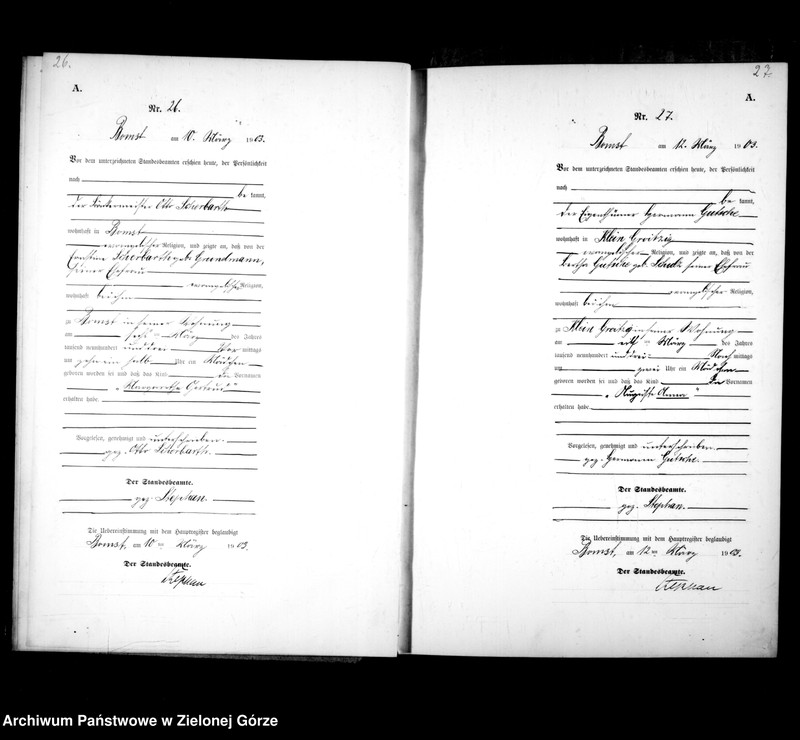 26.
A.
Nr. 26.
Bomst am 10. März 1903.
Vor dem unterzeichneten Standesbeamten erschien heute, der Persönlichkeit
nach
be kannt,
der Otto Scherbarth
wohnhaft in Bomst
evangelischer Religion, und zeigte an, daß von der
Scherbarth geb. Grundmann,
seiner Ehefrau
evangelischer Religion,
wohnhaft bei ihm
zu Bomst in seiner Wohnung
am März des Jahres
tausend neunhundert und drei Vor mittags
um zehn ein halb Uhr ein Mädchen
geboren worden sei und daß das Kind die Vornamen
„Margarethe Gertrud"
erhalten habe.
Vorgelesen, genehmigt und unterschrieben.
gez. Otto Scherbarth.
Der Standesbeamte.
gez. Stephan.
Die Uebereinstimmung mit dem Hauptregister beglaubigt
Bomst, am 10ten März 1903.
Der Standesbeamte.
Stephan
27.
A.
Nr. 27.
Bomst am 12. März 1903.
Vor dem unterzeichneten Standesbeamten erschien heute, der Persönlichkeit
nach
be kannt,
der Eigenthümer Hermann Gutsche
wohnhaft in Klein Groitzig
evangelischer Religion, und zeigte an, daß von der
Bertha Gutsche geb. seiner Ehefrau
evangelischer Religion,
wohnhaft bei ihm
zu Klein Groitzig in seiner Wohnung
am März des Jahres
tausend neunhundert und drei Nach mittags
um zwei Uhr ein Mädchen
geboren worden sei und daß das Kind die Vornamen
„Auguste Anna"
erhalten habe.
Vorgelesen, genehmigt und unterschrieben.
gez. Hermann Gutsche.
Der Standesbeamte.
gez. Stephan.
Die Uebereinstimmung mit dem Hauptregister beglaubigt
Bomst, am 12ten März 1903.
Der Standesbeamte.
Stephan
Archiwum Państwowe w Zielonej Górze